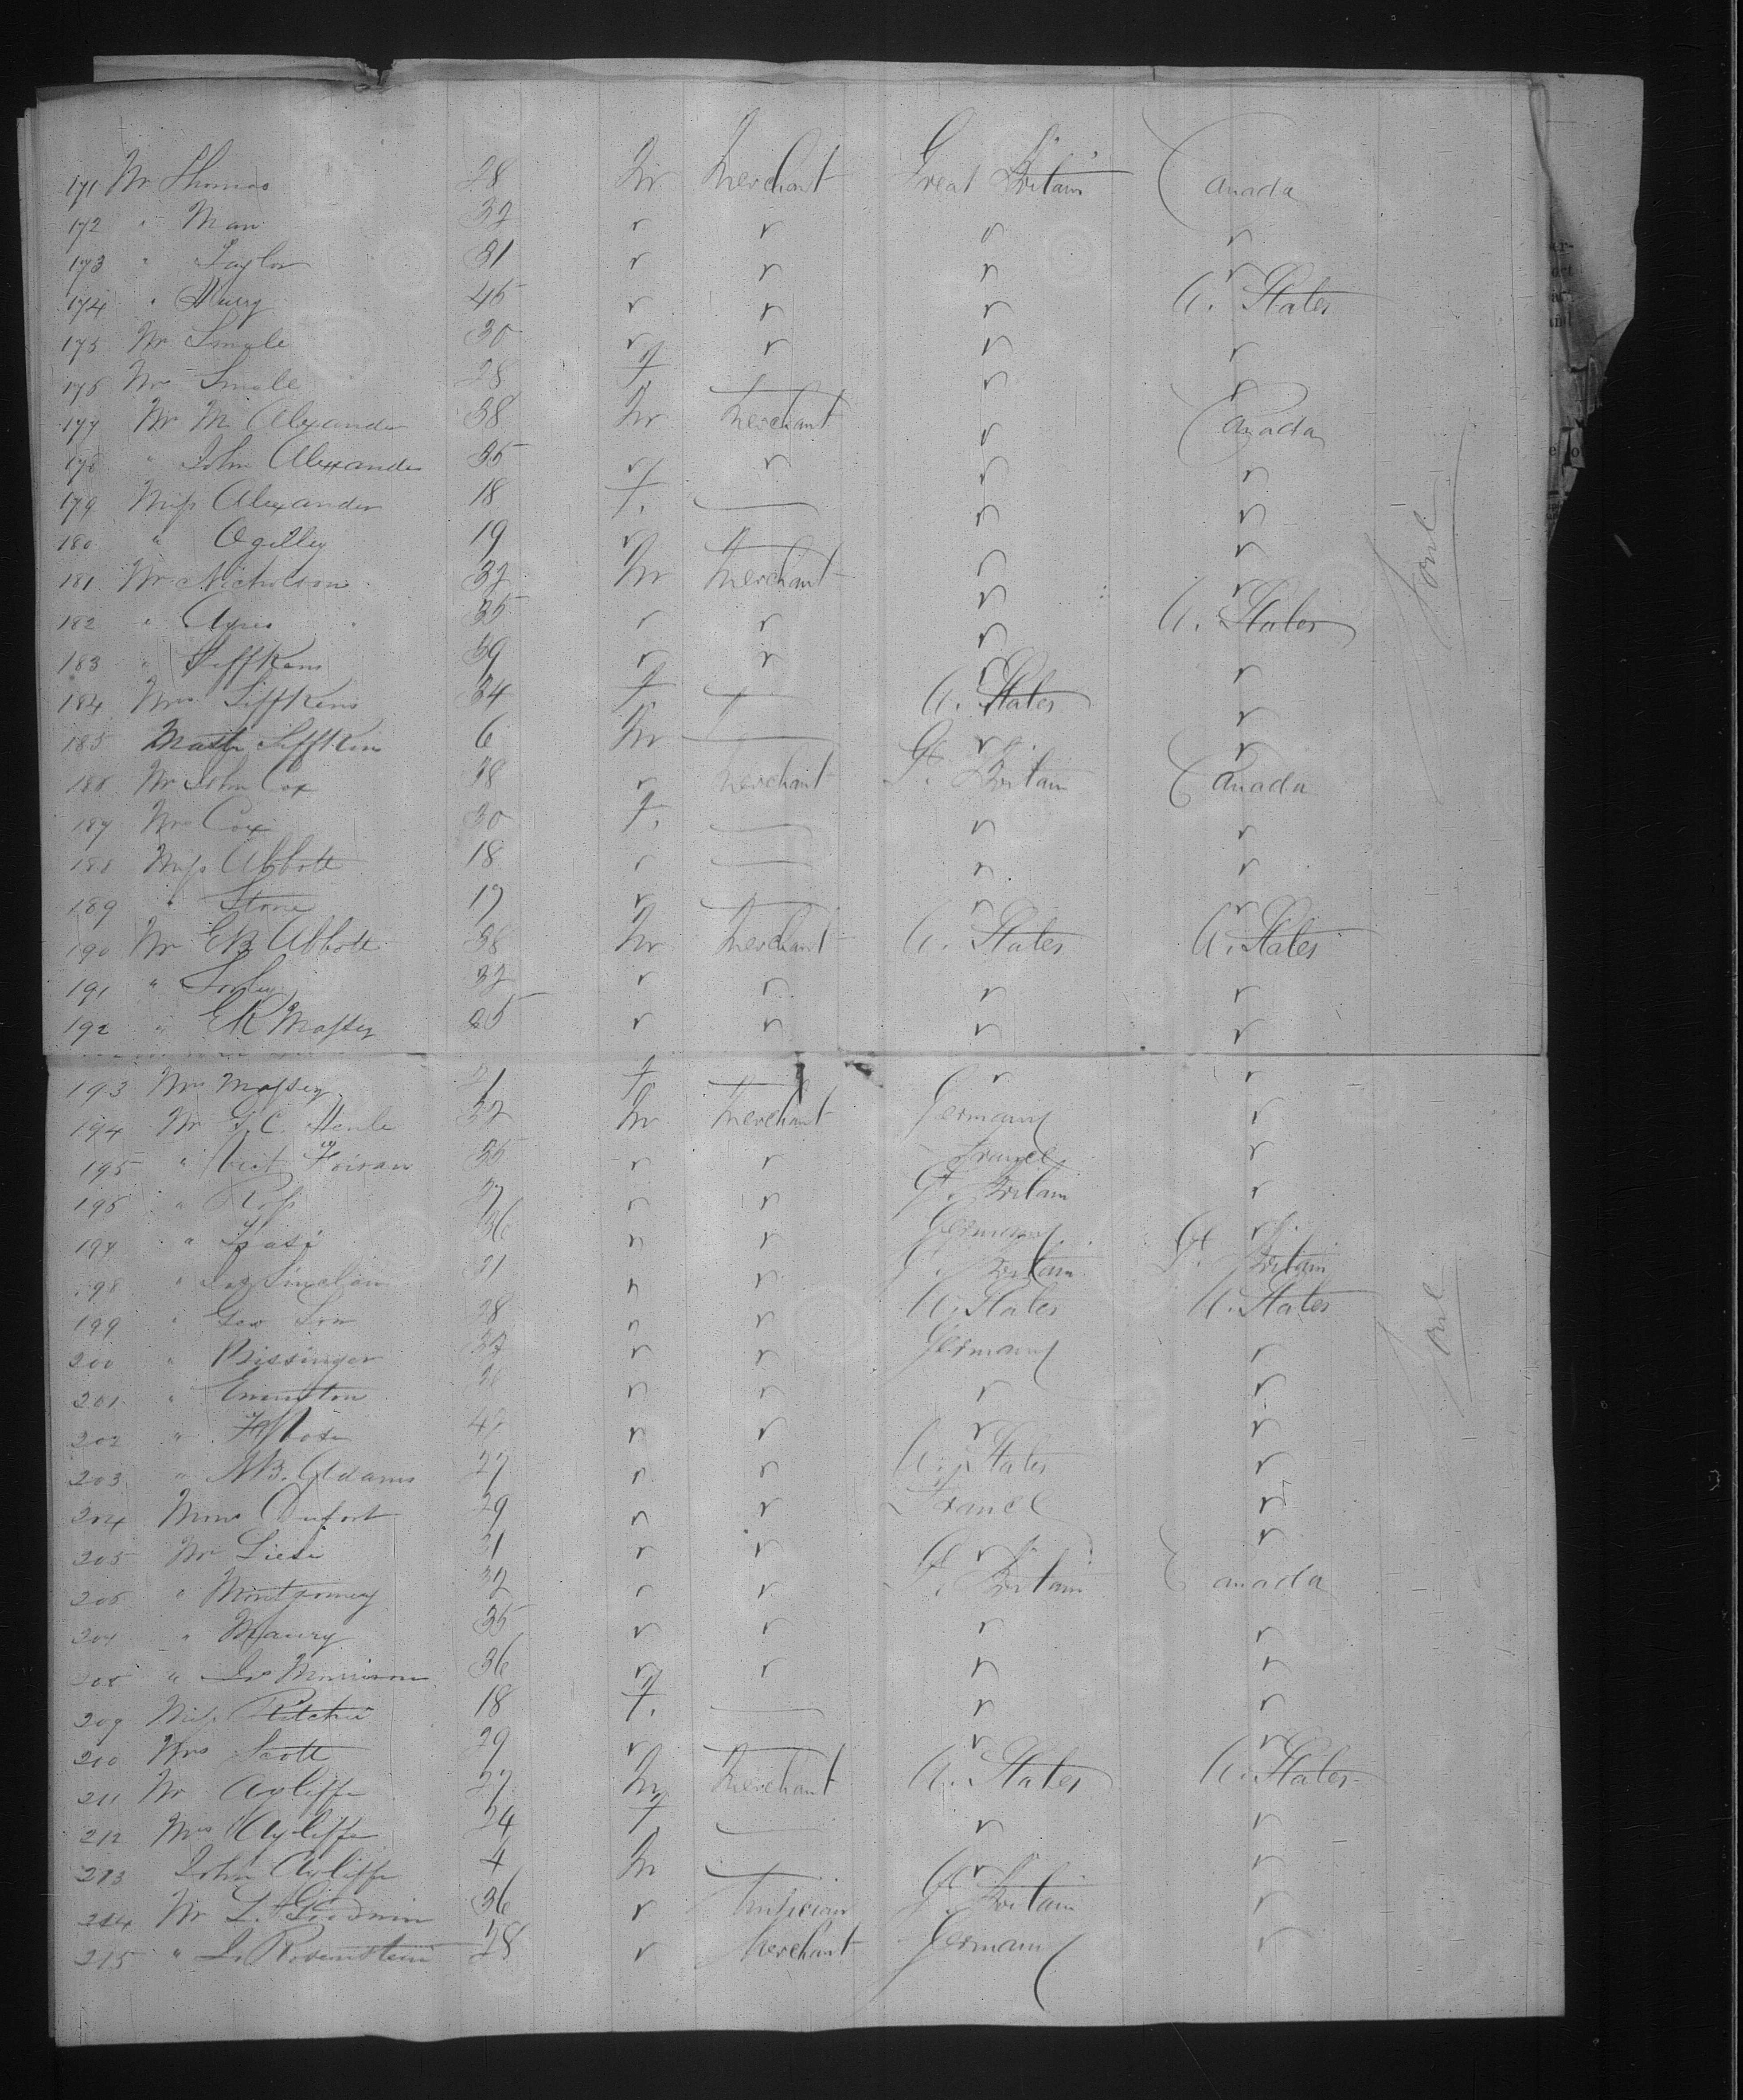 171 Mr Thomas 28 M Merchant Great Britain Canada
172 " Man 32 " " " "
173 " Taylor 31 " " " "
174 " Harry 45 " " " U. States
175 Mr Smale 30 " " " "
176 Mrs Smale 28 F — " "
177 Mr M. Alexander 38 M Merchant " Canada
178 " John Alexander 35 " " " "
179 Miss Alexander 18 F. — " "
180 " Ogilley 19 " — " "
181 Mr Nicholson 32 M Merchant " "
182 " Ayres 35 " " " U. States
183 " Siffkens 39 " " " "
184 Mrs Siffkens 34 F. — U. States "
185 Mastr Siffken 6 M — " "
186 Mr John Cox 38 " Merchant Gt. Britain Canada
187 Mrs Cox 30 F. — " "
188 Miss Abbott 18 " — " "
189 " Stone 17 " — " "
190 Mr EB Abbott 38 M Merchant U. States U. States
191 " Sorley 32 " " " "
192 " EK Massey 25 " " " "
193 Mrs Massey 21 F — " "
194 Mr G.C. Henle 32 M Merchant Germany "
195 " Vict Foiran 35 " " France "
196 " Ross 27 " " Gt. Britain "
197 " 36 " " Germany "
198 " Jas Sinclair 21 " " Gt. Britain Gt. Britain
199 " Geo Son 28 " " U. States U. States
200 " Bissinger 32 " " Germany "
201 " " " " "
202 " " " " "
203 " AB. Adams 27 " " U. States "
204 Mons Dufort 29 " " France "
205 Mr Liesi 31 " " " "
206 " Montgomery 32 " " Gt. Britain Canada
207 " Maury 35 " " " "
208 " Js Morrison 36 " " " "
209 Miss Ritchie 18 F. — " "
210 Mrs Scott 29 " — " "
211 Mr Ayliffe 27 M Merchant U. States U. States
212 Mrs Ayliffe 24 F — " "
213 John Ayliffe 4 M — " "
214 Mr L. Goodwin 36 " Musician Gt. Britain "
215 " Rosenstein 28 " Merchant Germany "